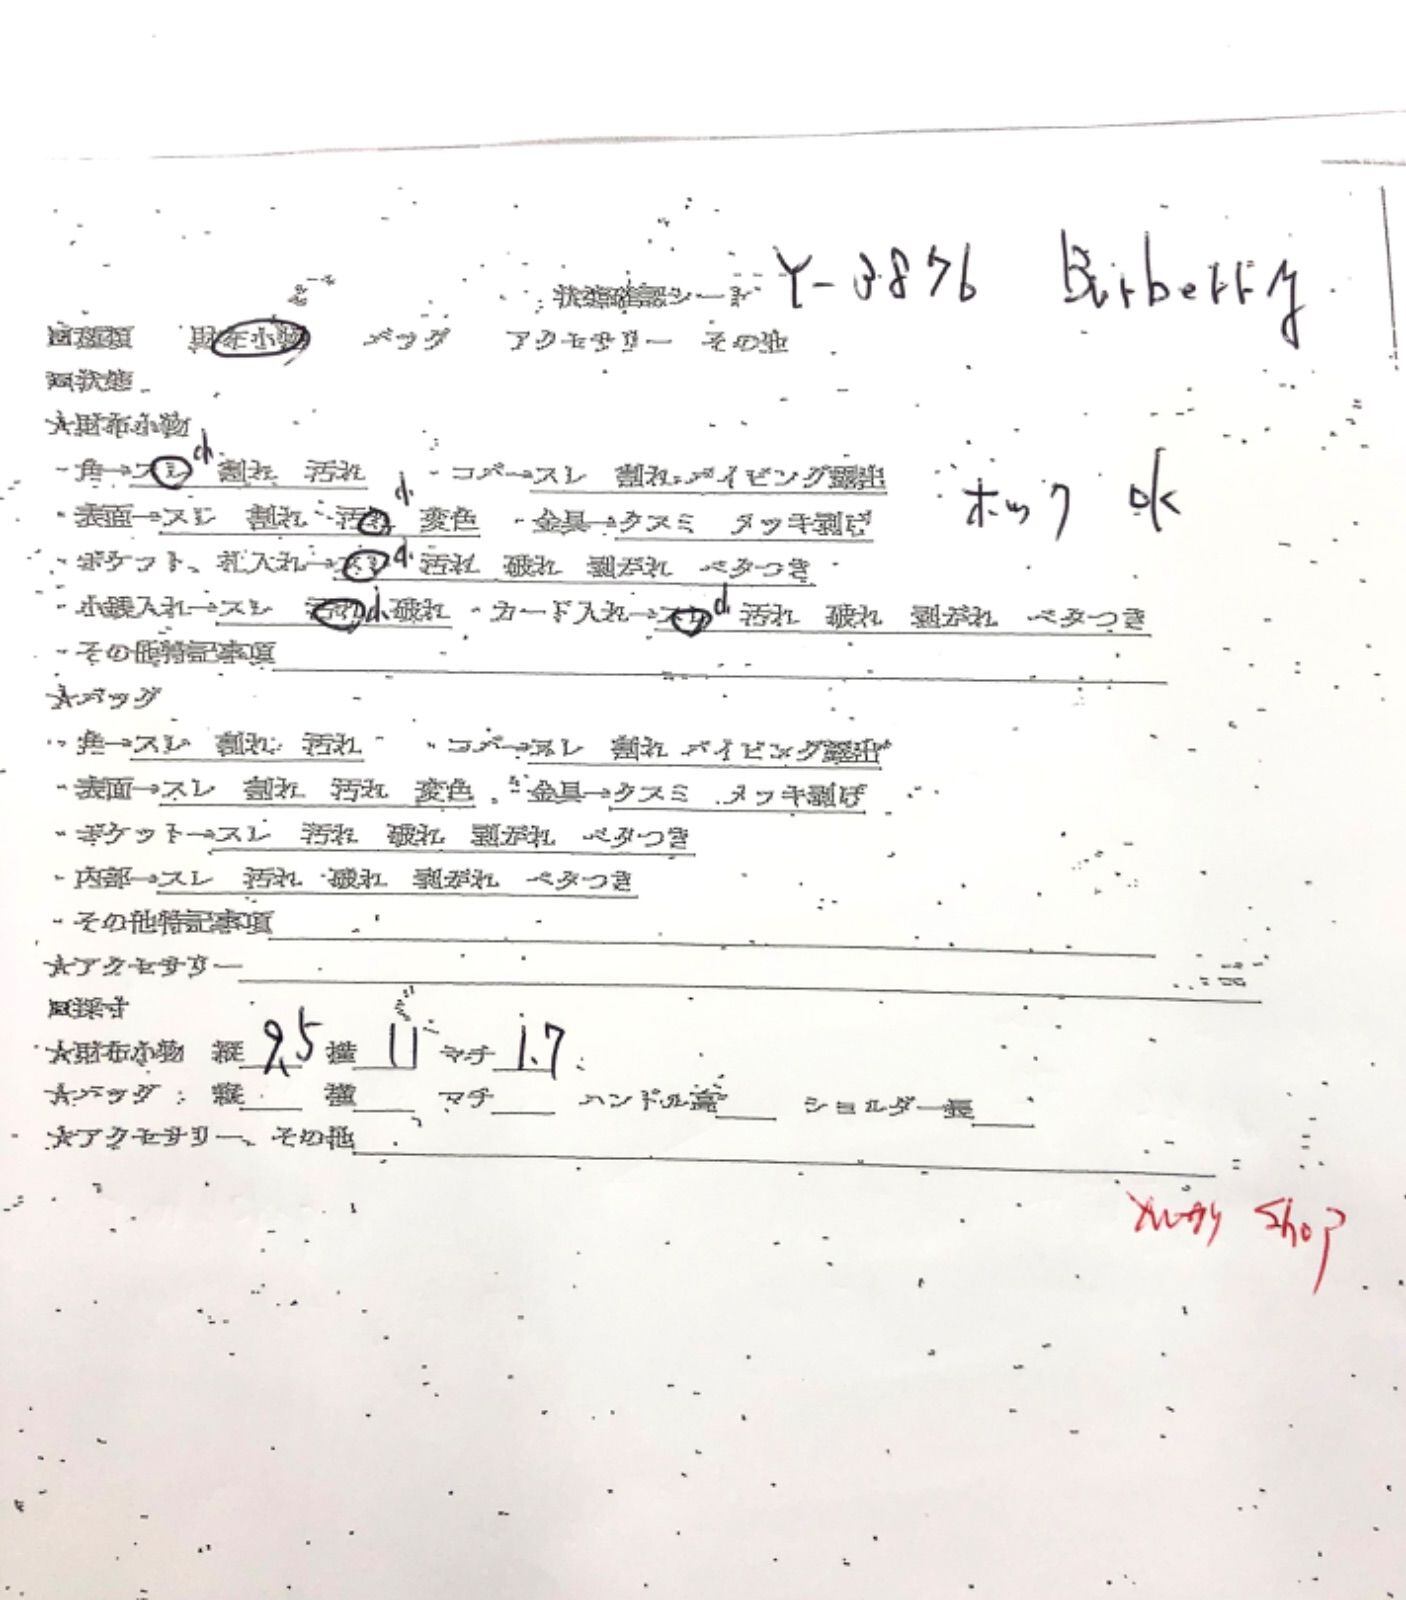 状態確認シート Y-3876 Burberry
□種類 財布小物 バッグ アクセサリー その他
□状態
★財布小物
・角→スレ d 割れ 汚れ ・コバ→スレ 割れ パイピング露出 ホック ok
・表面→スレ 割れ 汚れ d 変色 ・金具→クスミ メッキ剥げ
・ポケット、札入れ→スレ d 汚れ 破れ 剥がれ ベタつき
・小銭入れ→スレ 汚れ d 破れ ・カード入れ→スレ d 汚れ 破れ 剥がれ ベタつき
・その他特記事項
★バッグ
・角→スレ 割れ 汚れ ・コバ→スレ 割れ パイピング露出
・表面→スレ 割れ 汚れ 変色 ・金具→クスミ メッキ剥げ
・ポケット→スレ 汚れ 破れ 剥がれ ベタつき
・内部→スレ 汚れ 破れ 剥がれ ベタつき
・その他特記事項
★アクセサリー
□採寸
★財布小物 縦 9.5 横 11 マチ 1.7
★バッグ 縦 横 マチ ハンドル高 ショルダー長
★アクセサリー、その他
Shop